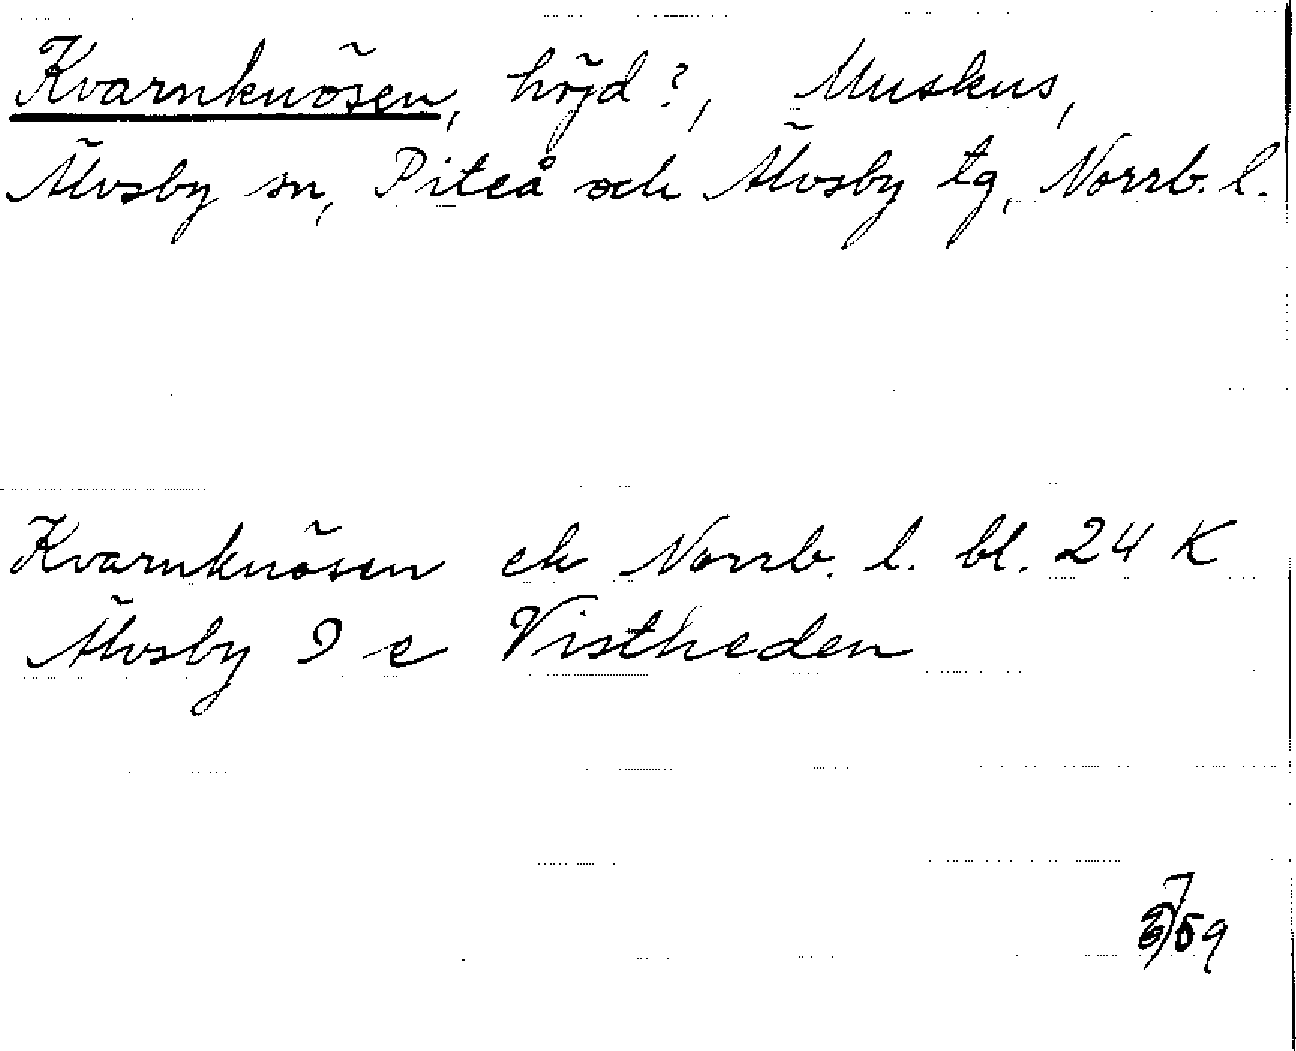 Kvarnknösen, höjd?, Muskus,
Älvsby sn, Piteå och Älvsby tg, Norrb. l.
Kvarnknösen ek Norrb. l. bl. 24 K
Älvsby 9 e Vistheden